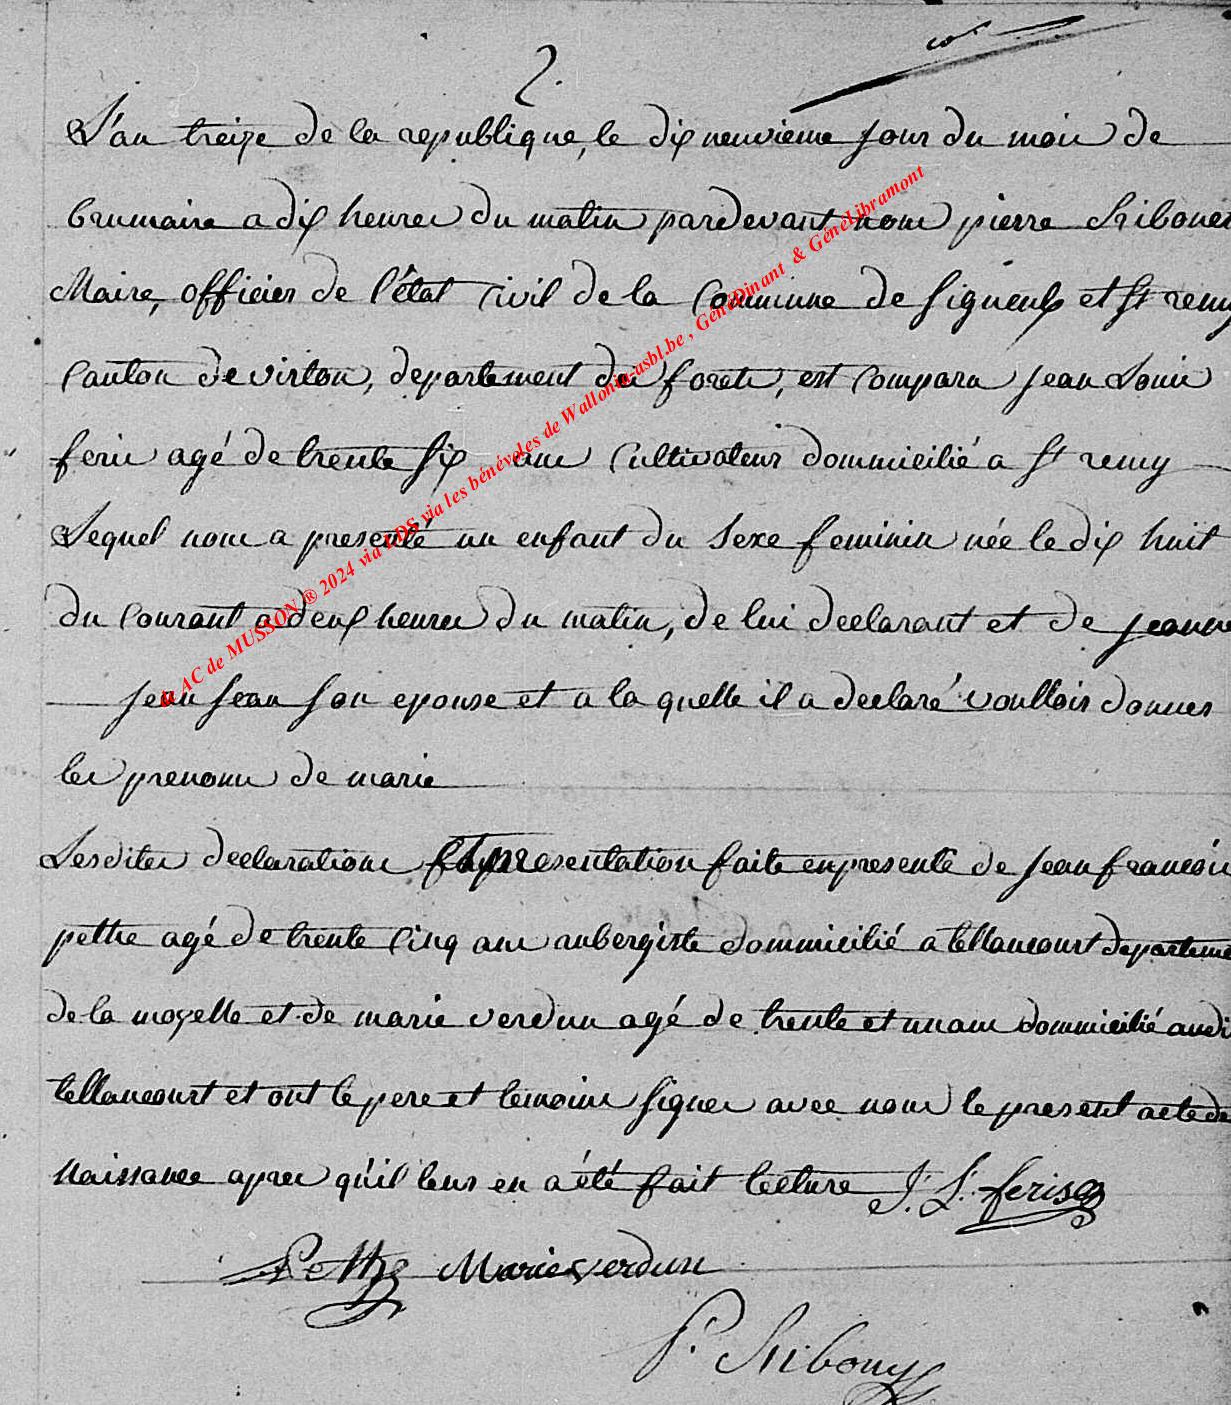 2.
L'an treize de la republique, le dix neuvieme jour du mois de
brumaire a dix heures du matin pardevant nous pierre
Maire, officier de l'état civil de la Commune de Signeulx et St remy
Canton de virton, departement des forets, est comparu jean Louis
feris agé de trente six ans Cultivateur dommicilié a St remy
Lequel nous a presenté un enfant du sexe feminin née le dix huit
du Courant a deux heures du matin, de lui declarant et de jeanne
jean jean son epouse et a la quelle il a declaré voulloir donner
les prenoms de marie
Lesdites declarations et presentation faite en presente de jean francois
pethe agé de trente cinq ans aubergiste dommicilié a tellancourt departeme
de la mozelle et de marie verdun agé de trente et un ans dommicilié audi
tellancourt et ont le pere et temoins signes avec nous le present acte de
Naissance apres qu'il leurs en a été fait lecture J. L. feris
Marie verdun
P.
© AC de MUSSON ® 2024 via LDS via les bénévoles de Wallonia-asbl.be , GénéDinant & GénéLibramont